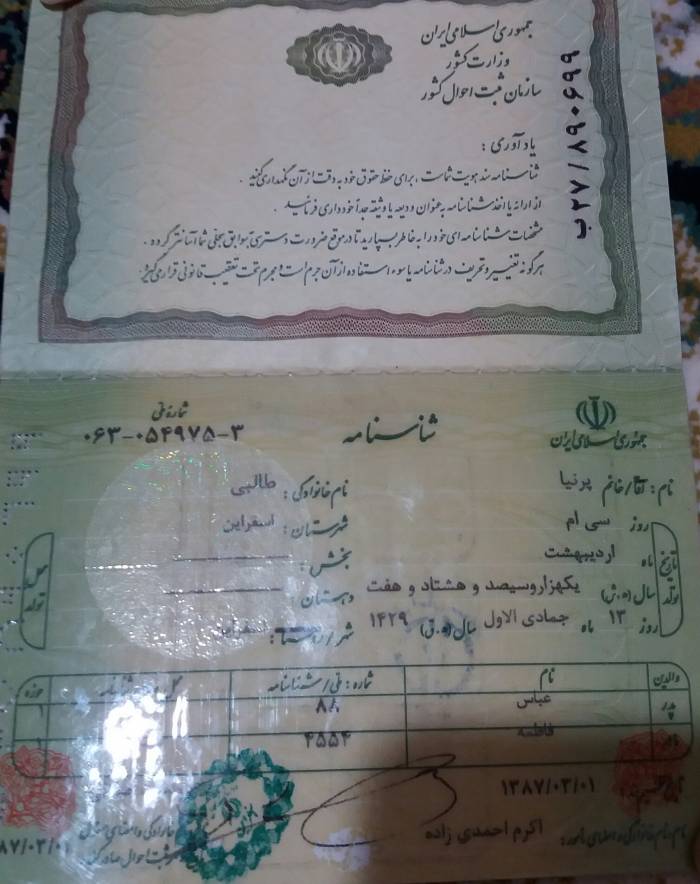 جمهوری اسلامی ایران
وزارت کشور
سازمان ثبت احوال کشور
ب۲۷/۸۹۰۶۹۹
یادآوری :
شناسنامه سند هویت شماست ، برای حفظ حقوق خود به دقت از آن نگهداری کنید .
از ارائه یا اخذ شناسنامه به عنوان ودیعه یا وثیقه جداً خودداری فرمائید .
مشخصات شناسنامه ای خود را به خاطر بسپارید تا در موقع ضرورت دسترسی به سوابق سجلی شما آسانتر گردد .
هرگونه تغییر و تحریف در شناسنامه یا سوء استفاده از آن جرم است و مجرم تحت تعقیب قانونی قرار می گیرد .
جمهوری اسلامی ایران
شناسنامه
شماره ملی
۰۶۳-۰۵۴۹۷۵-۳
نام : آقا/خانم پرنیا
نام خانوادگی : طالبی
تاریخ تولد
روز سی ام
شهرستان : اسفراین
ماه اردیبهشت
بخش :
سال (ه.ش) یکهزار و سیصد و هشتاد و هفت
دهستان :
روز ۱۳ ماه جمادی الاول سال (ه.ق) ۱۴۲۹
شهر / روستا :
محل تولد
والدین نام شماره : ملی / شناسنامه حوزه
پدر عباس ۸۸
فاطمه ۴۵۵۴
۱۳۸۷/۰۳/۰۱
نام،نام خانوادگی و امضای مامور : اکرم احمدی زاده